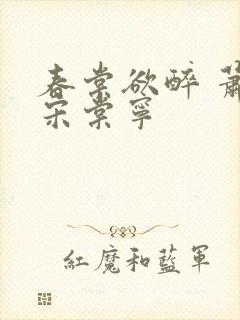 春棠欲醉 蕭
宋棠寧
紅魔和藍軍